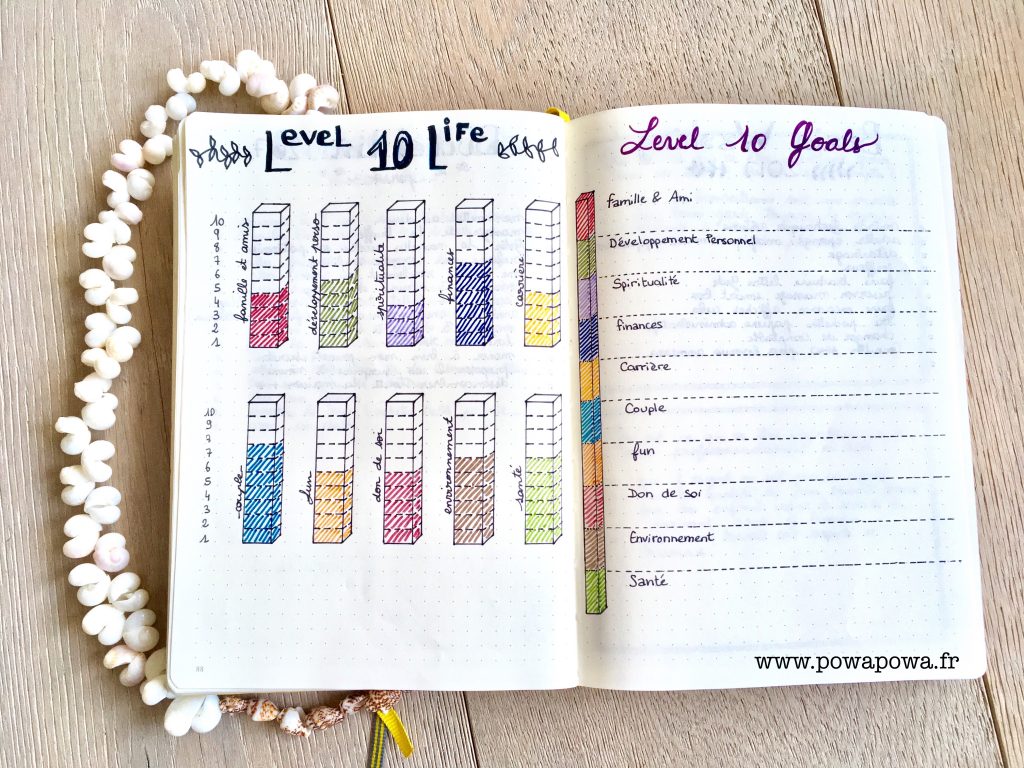 Level 10 Life
10
9
8
7
6
5
4
3
2
1
famille et amis
développement perso
spiritualité
finances
carrière
10
9
8
7
6
5
4
3
2
1
couple
fun
don de soi
environnement
santé
88
Level 10 Goals
Famille & Ami
Développement Personnel
Spiritualité
finances
Carrière
Couple
fun
Don de soi
Environnement
Santé
www.powapowa.fr